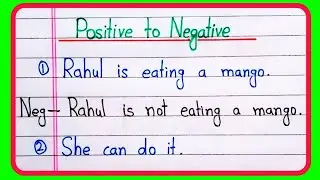 Positive to Negative
① Rahul is eating a mango.
Neg— Rahul is not eating a mango.
② She can do it.